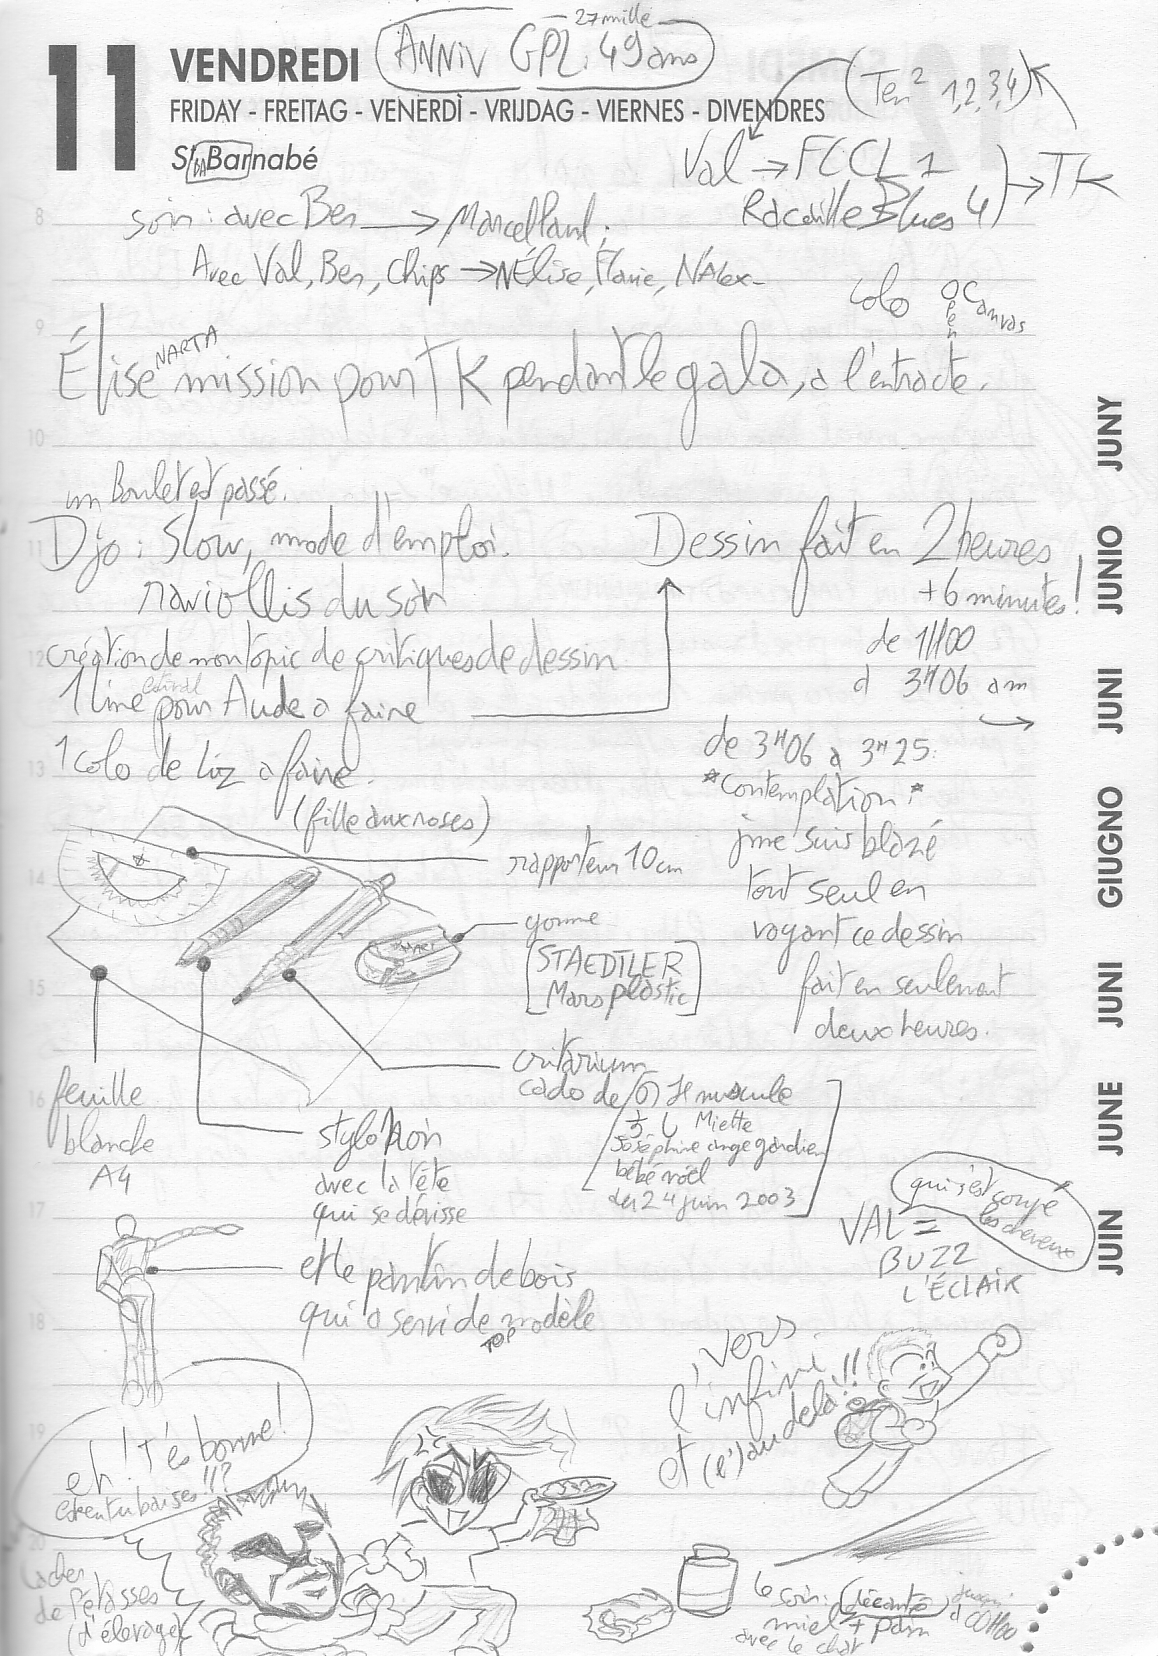 27 mille
11 VENDREDI ANNIV GPL: 49 ans
FRIDAY - FREITAG - VENERDÌ - VRIJDAG - VIERNES - DIVENDRES
(Ten² 1,2,3,4)
St Barnabé
DA
Val → FCCL 1
Racaille Blues 4) → TK
8
soir : avec Ben → Marcelland ;
Avec Val, Ben, Chips → NÉlise, Flavie, NAlex-
colo Open Canvas
9
Élise NARTA mission pour TK pendant le gala, à l'entracte.
10
un Boulet est passé.
11
Djo : Slow, mode d'emploi.
raviollis du soir
12
création de mon topic de critiques de dessin
1 line estival pour Aude a faire
1 colo de Liz a faire.
(fille aux roses)
Dessin fait en 2 heures
+6 minutes!
de 1H00
à 3H06 am
de 3H06 à 3H25:
*contemplation*
j'me suis blazé
tout seul en
voyant ce dessin
fait en seulement
deux heures.
13
14
rapporteur 10cm
gomme
[STAEDTLER
Mars plastic]
15
critarium
cado de
Miette
Joséphine ange gardien
bébé noël
du 24 juin 2003
16
feuille
blanche
A4
stylo noir
avec la tête
qui se dévisse
17
et le pantin de bois
qui a servi de modèle
TOP
18
VAL =
BUZZ
L'ÉCLAIR
qui s'est coupé
les cheveux
"vers
l'infini
et (l')au delà!!
19
eh! T'es bonne!
20
de Pétasses
(d'élevage)
le soir: décanté jusqu'à 00H00
miel + pain
avec le chat
JUNY
JUNIO
JUNI
GIUGNO
JUNI
JUNE
JUIN